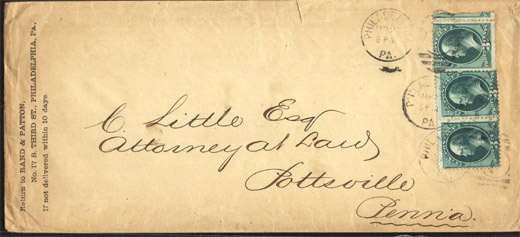 Return to RAND & PATTON,
No. 17 S. THIRD ST., PHILADELPHIA, Pa.,
If not delivered within 10 days
C. Little Esq
Attorney at Law
Pottsville
Penn'a.
PA.
PA